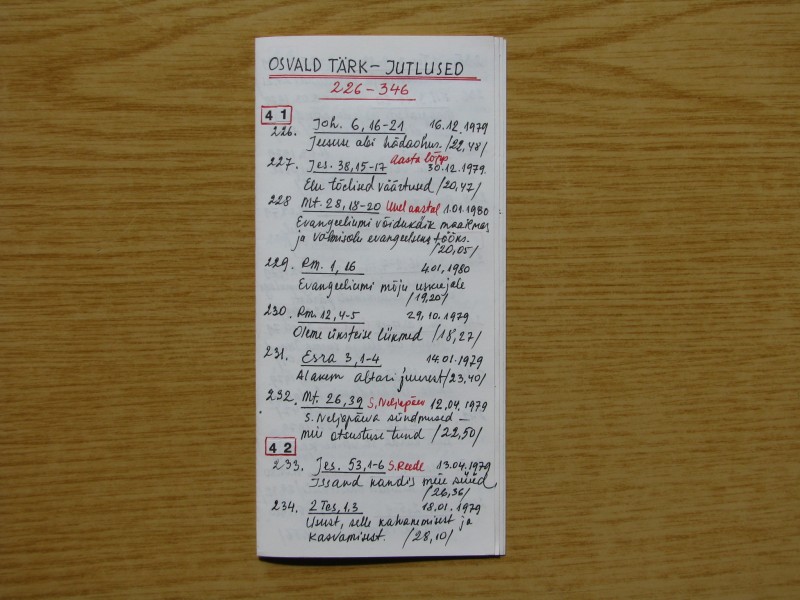 OSVALD TÄRK – JUTLUSED
226 – 346
4 1
226. Joh. 6, 16-21 16.12.1979
Jeesuse abi hädaohus. /22,48/
227. Jes. 38,15-17 Aasta lõpp 30.12.1979.
Elu tõelised väärtused /20,47/
228 Mt. 28,18-20 Uuel aastal 1.01.1980
Evangeeliumi võidukäik maailmas
ja valmisolu evangeeliumi tööks.
/20,05/
229. Rm. 1, 16 4.01.1980
Evangeeliumi mõju usujale
/19,20/
230. Rm. 12, 4-5 29.10.1979
Oleme üksteise liikmed /18,27/
231. Esra 3,1-4 14.01.1979
Alakem altari juurest /23,40/
232. Mt. 26,39 S. Neljapäev 12.04.1979
S. Neljapäeva sündmused –
meie otsustuse tund /22,50/
4 2
233. Jes. 53,1-6 S. Reede 13.04.1979
Issand kandis meie süüd
/26,36/
234. 2 Tes, 1.3 18.01.1979
Usust, selle kahanemisest ja
kasvamisest. /28,10/